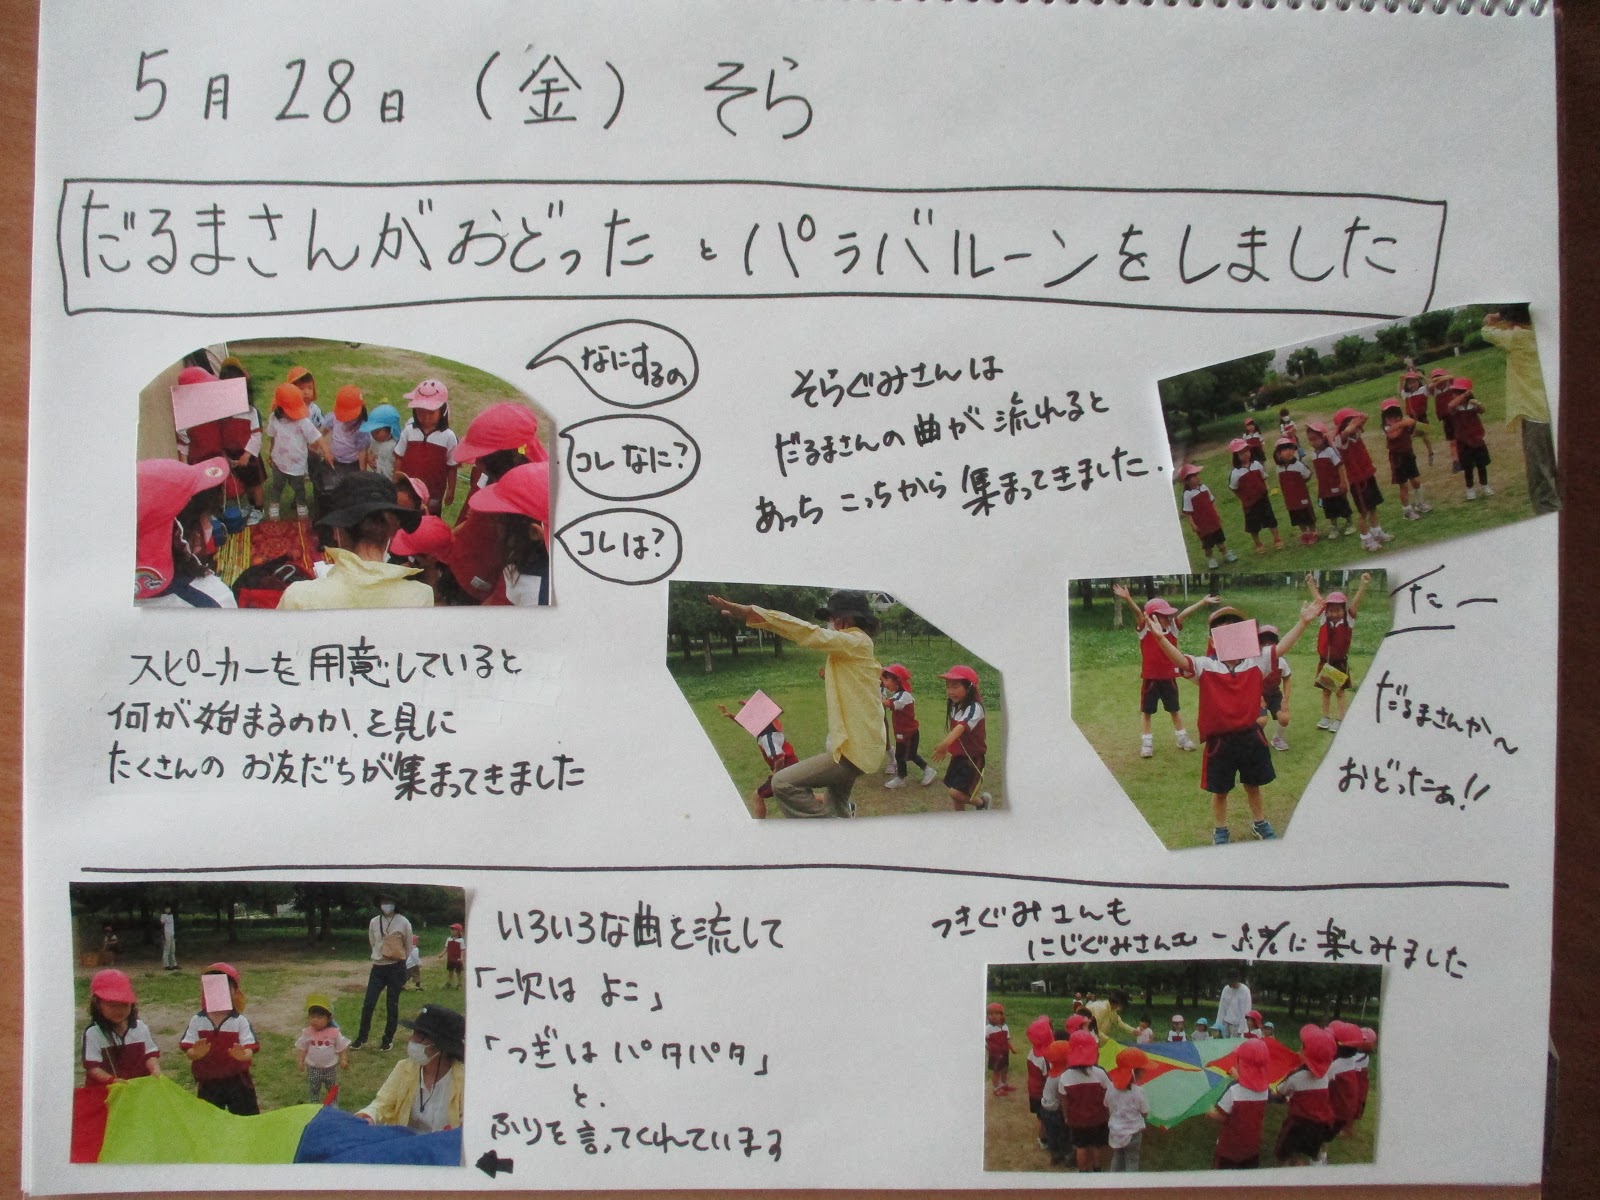 5月28日（金）そら
だるまさんがおどったとパラバルーンをしました
なにするの
コレなに？
コレは？
そらぐみさんは
だるまさんの曲が流れると
あっちこっちから集まってきました.
スピーカーを用意していると
何が始まるのか、を見に
たくさんのお友だちが集まってきました
たー
だるまさんが〜
おどったぁ!!
いろいろな曲を流して
「次は よこ」
「つぎは パタパタ」
と、
ふりを言ってくれています
つきぐみさんも
にじぐみさんも一緒に楽しみました